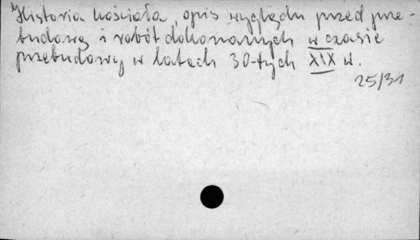 Historia kościoła, opis wyglądu przed prze-
budową i robót dokonanych w czasie
przebudowy w latach 30-tych XIX w.
25/31